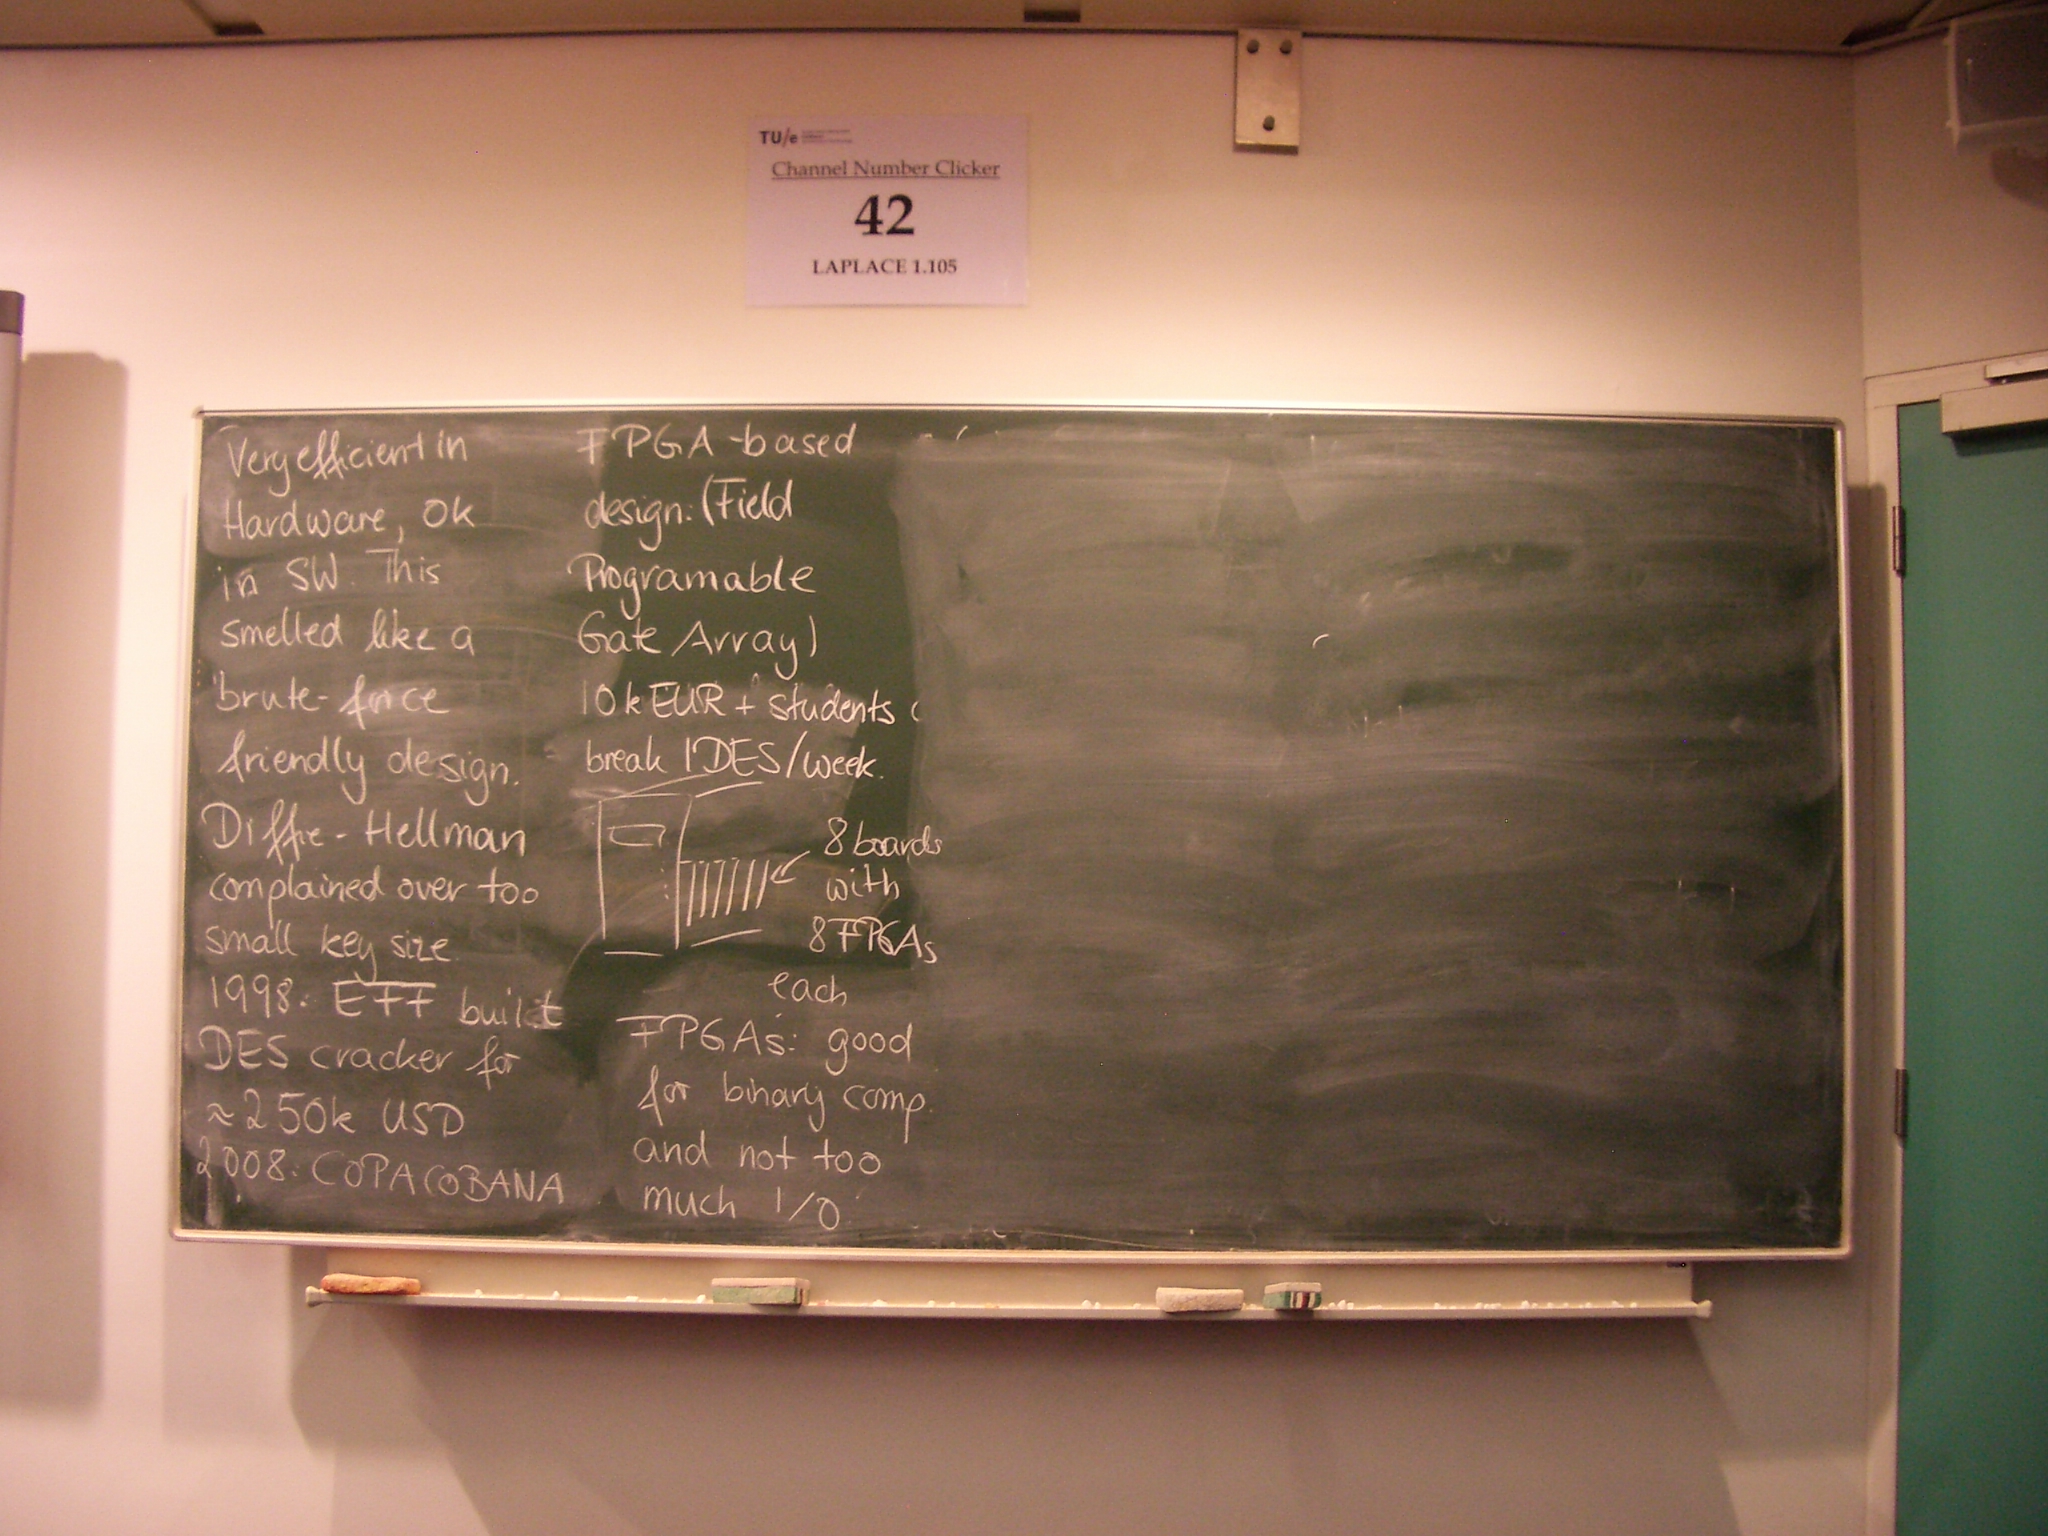 TU/e
Channel Number Clicker
42
LAPLACE 1.105
Very efficient in
Hardware, ok
in SW. This
smelled like a
brute-force
friendly design.
Diffie-Hellman
complained over too
small key size.
1998: EFF built
DES cracker for
≈250k USD
2008: COPACOBANA
FPGA-based
design: (Field
Programable
Gate Array)
10k EUR + students
break 1DES/week.
8 boards
with
8 FPGAs
each
FPGAs: good
for binary comp.
and not too
much I/O